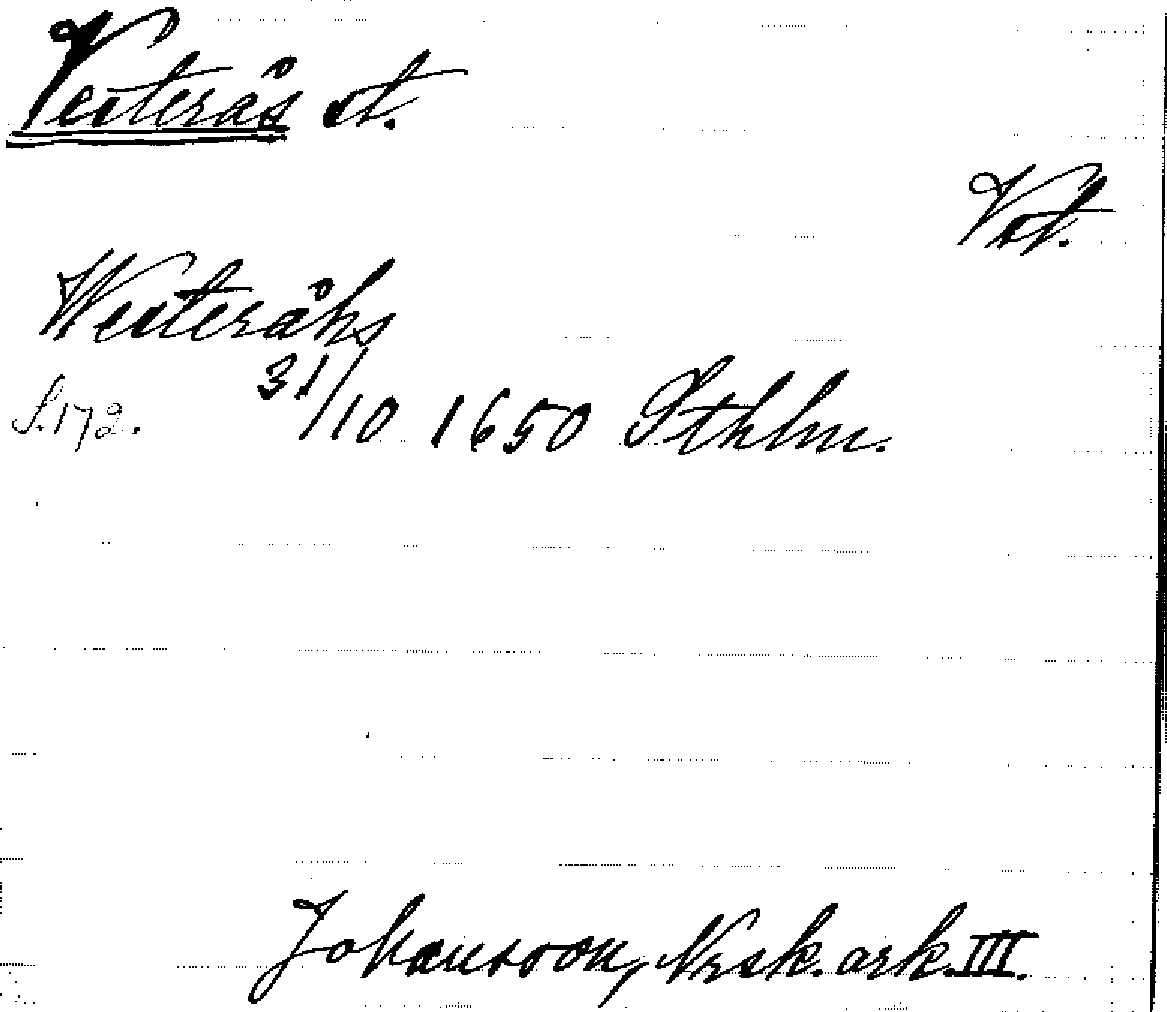 Vesterås st.
Vst.
Westeråhs
S. 172. 31/10 1650 Sthlm.
Johansson, Nrsk. ark. III.